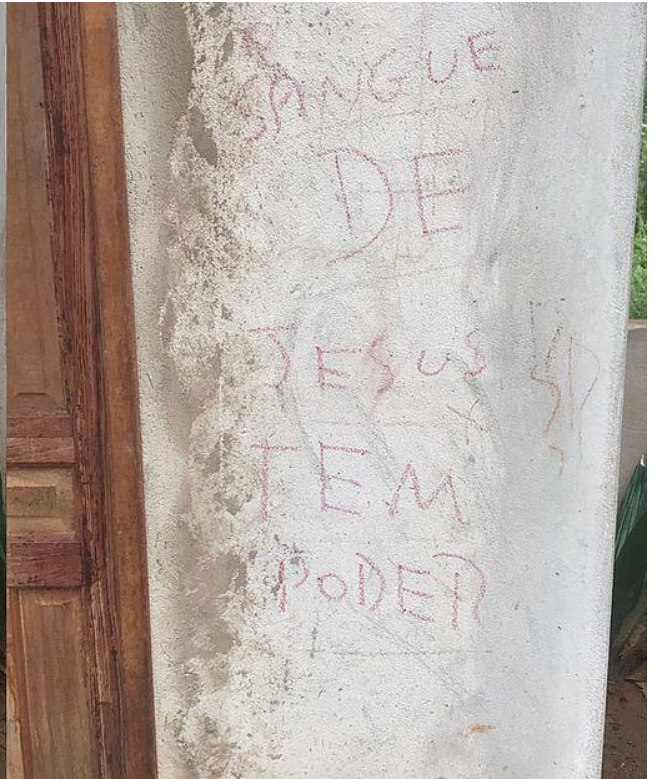 SANGUE
DE
JESUS
TEM
PODER